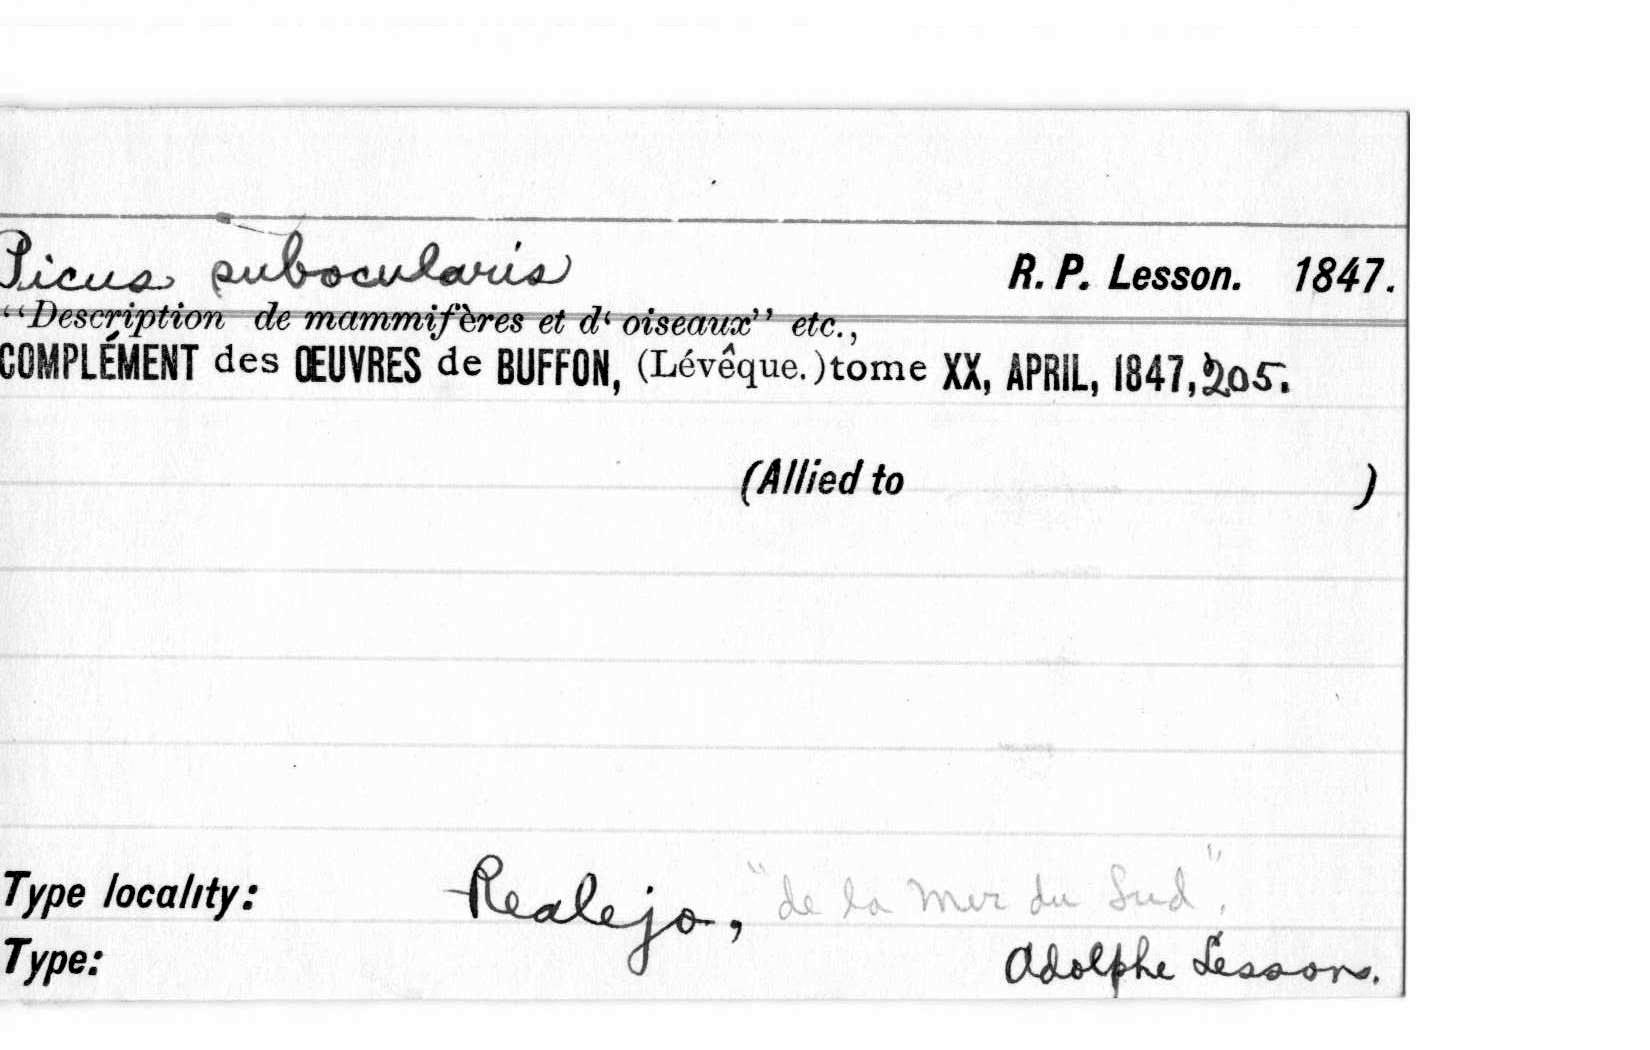 Picus subocularis R. P. Lesson. 1847.
“Description de mammifères et d‘ oiseaux” etc.,
COMPLÉMENT des ŒUVRES de BUFFON, (Lévêque.) tome XX, APRIL, 1847, 205.
(Allied to )
Type locality: Realejo, "de la Mer du Sud".
Type: Adolphe Lesson.